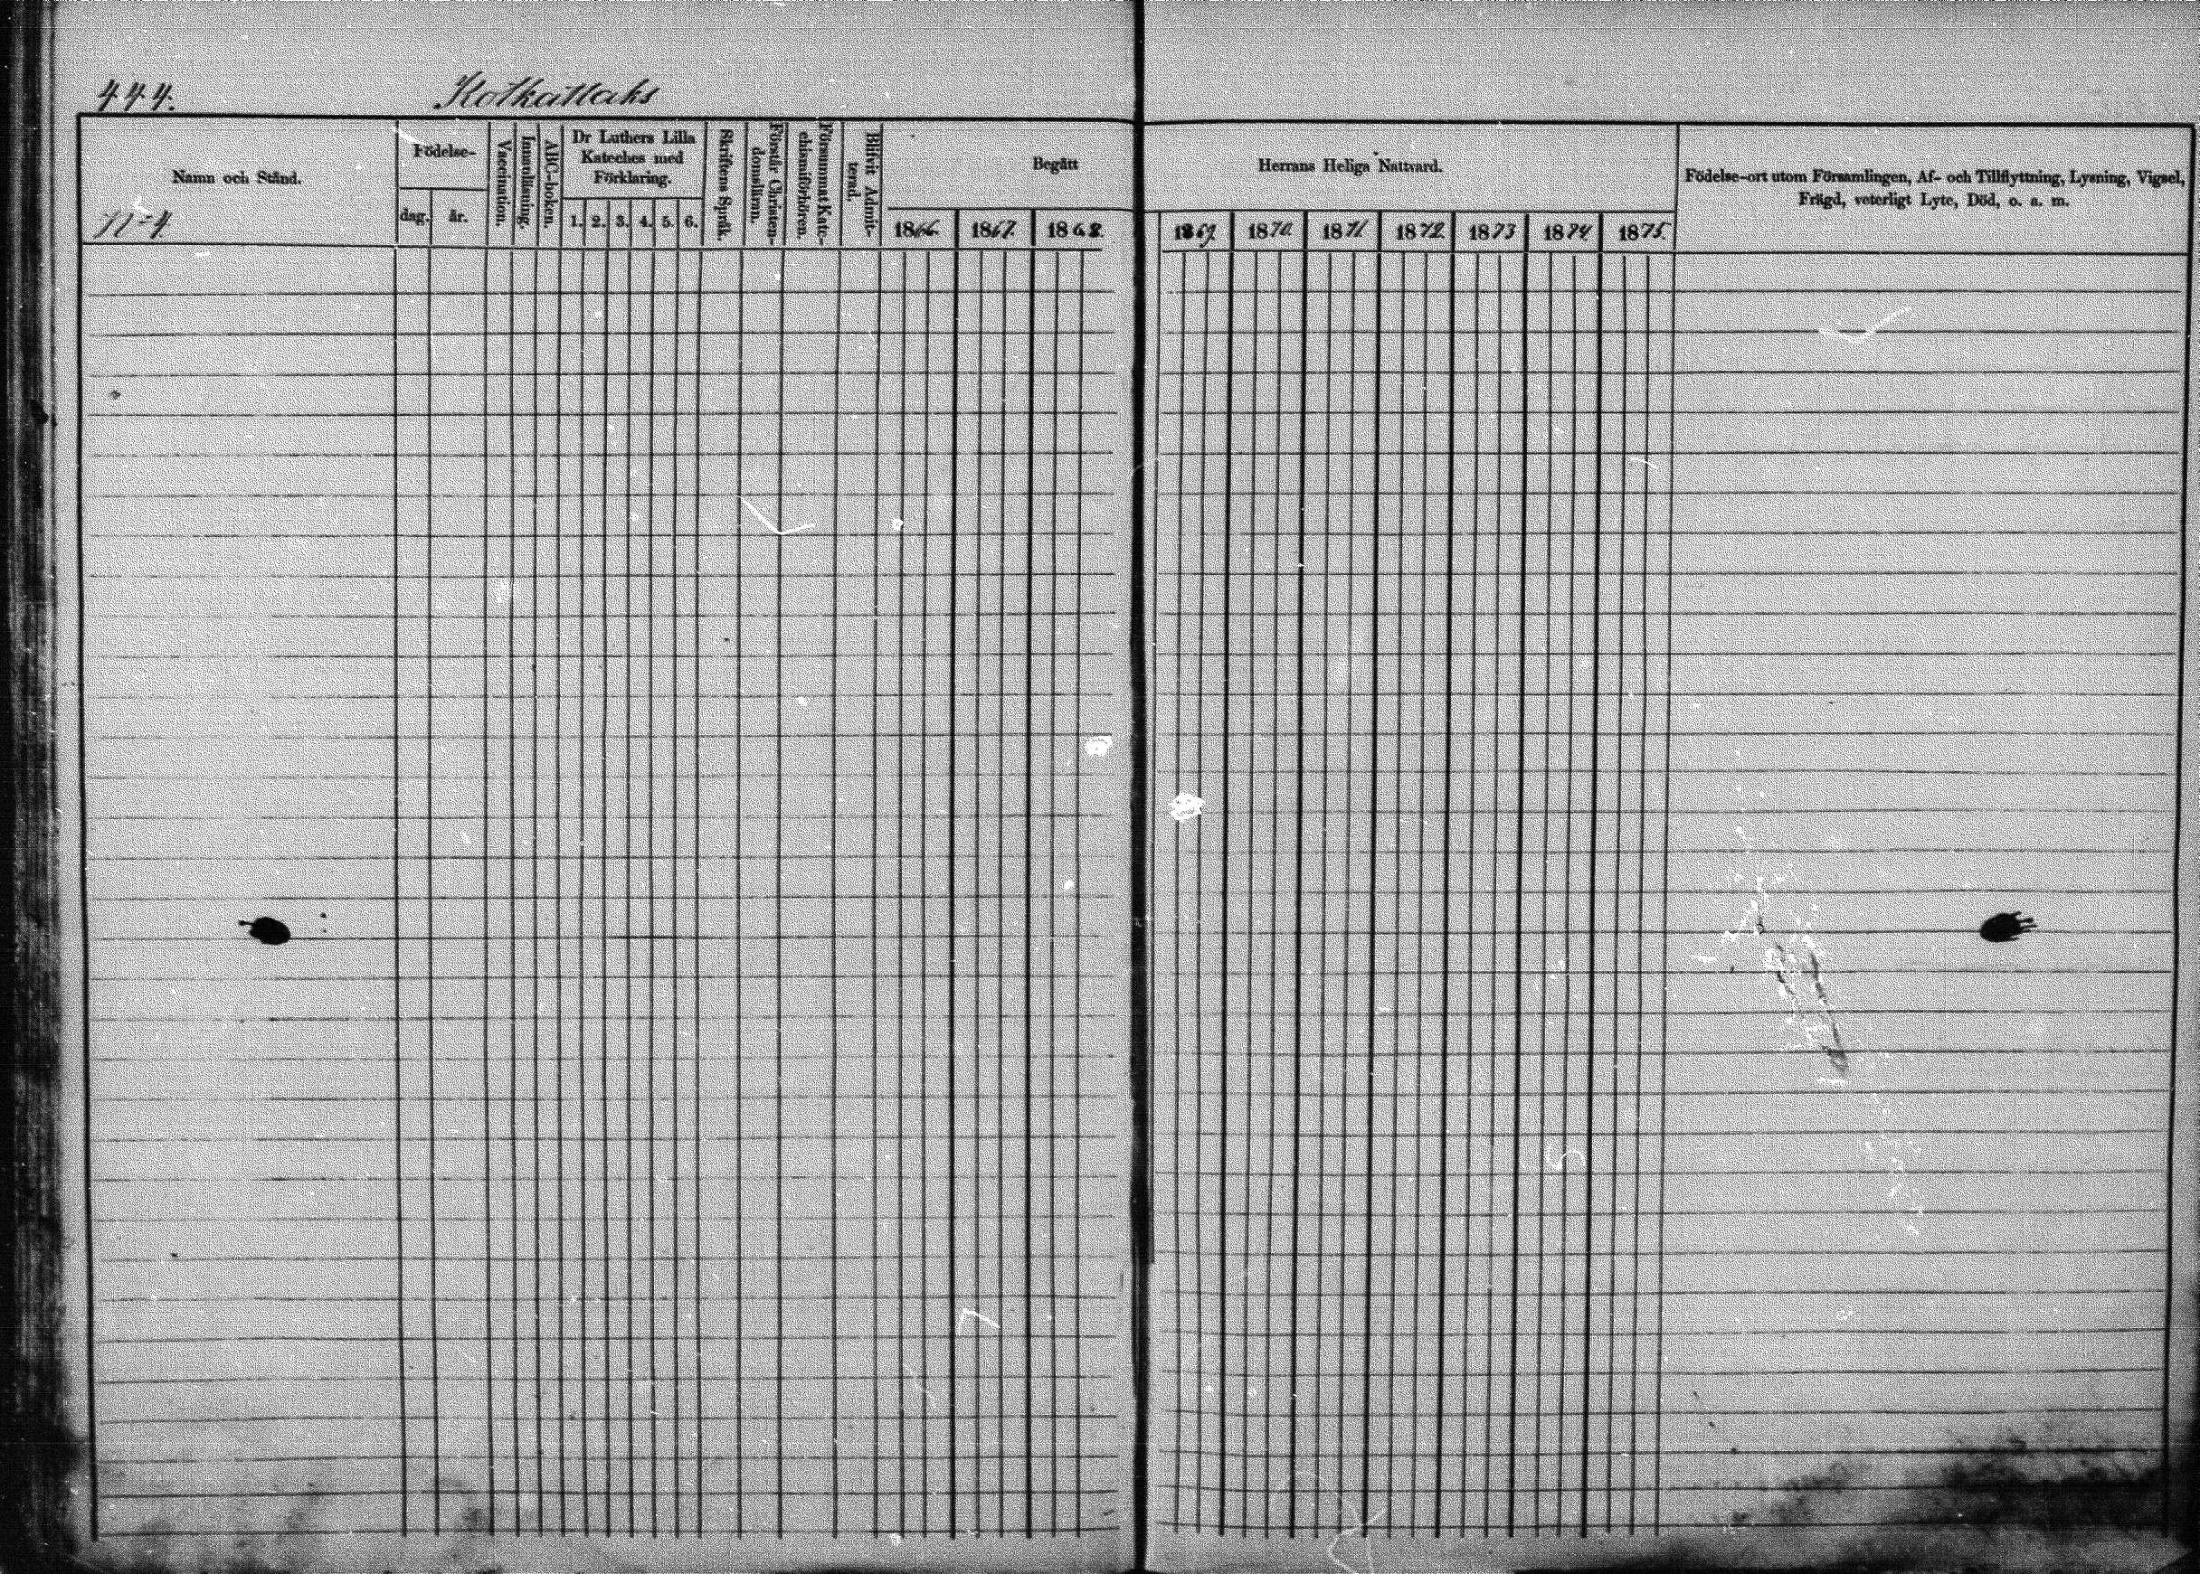 444. Kotkattaks
Namn och Stånd.
N=4.
Födelse-
dag. år.
Vaccination.
Innanläsning.
ABC-boken.
Dr Luthers Lilla
Kateches med
Förklaring.
1. 2. 3. 4. 5. 6.
Skriftens Språk.
Förstår Christen-
domsläran.
Försummat Kate-
chismiförhören.
Blifvit Admit-
terad.
Begått
1866. 1867. 1868.
Herrans Heliga Nattvard.
1869. 1870. 1871 1872. 1873 1874 1875.
Födelse-ort utom Församlingen, Af- och Tillflyttning, Lysning, Vigsel,
Frägd, veterligt Lyte, Död, o. s. m.